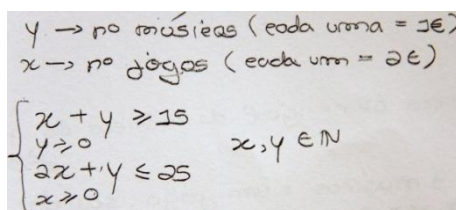 y → nº músicas (cada uma = 1€)
x → nº jogos (cada um = 2€)
x + y ≥ 15
y ≥ 0
x, y ∈ ℕ
2x + y ≤ 25
x ≥ 0